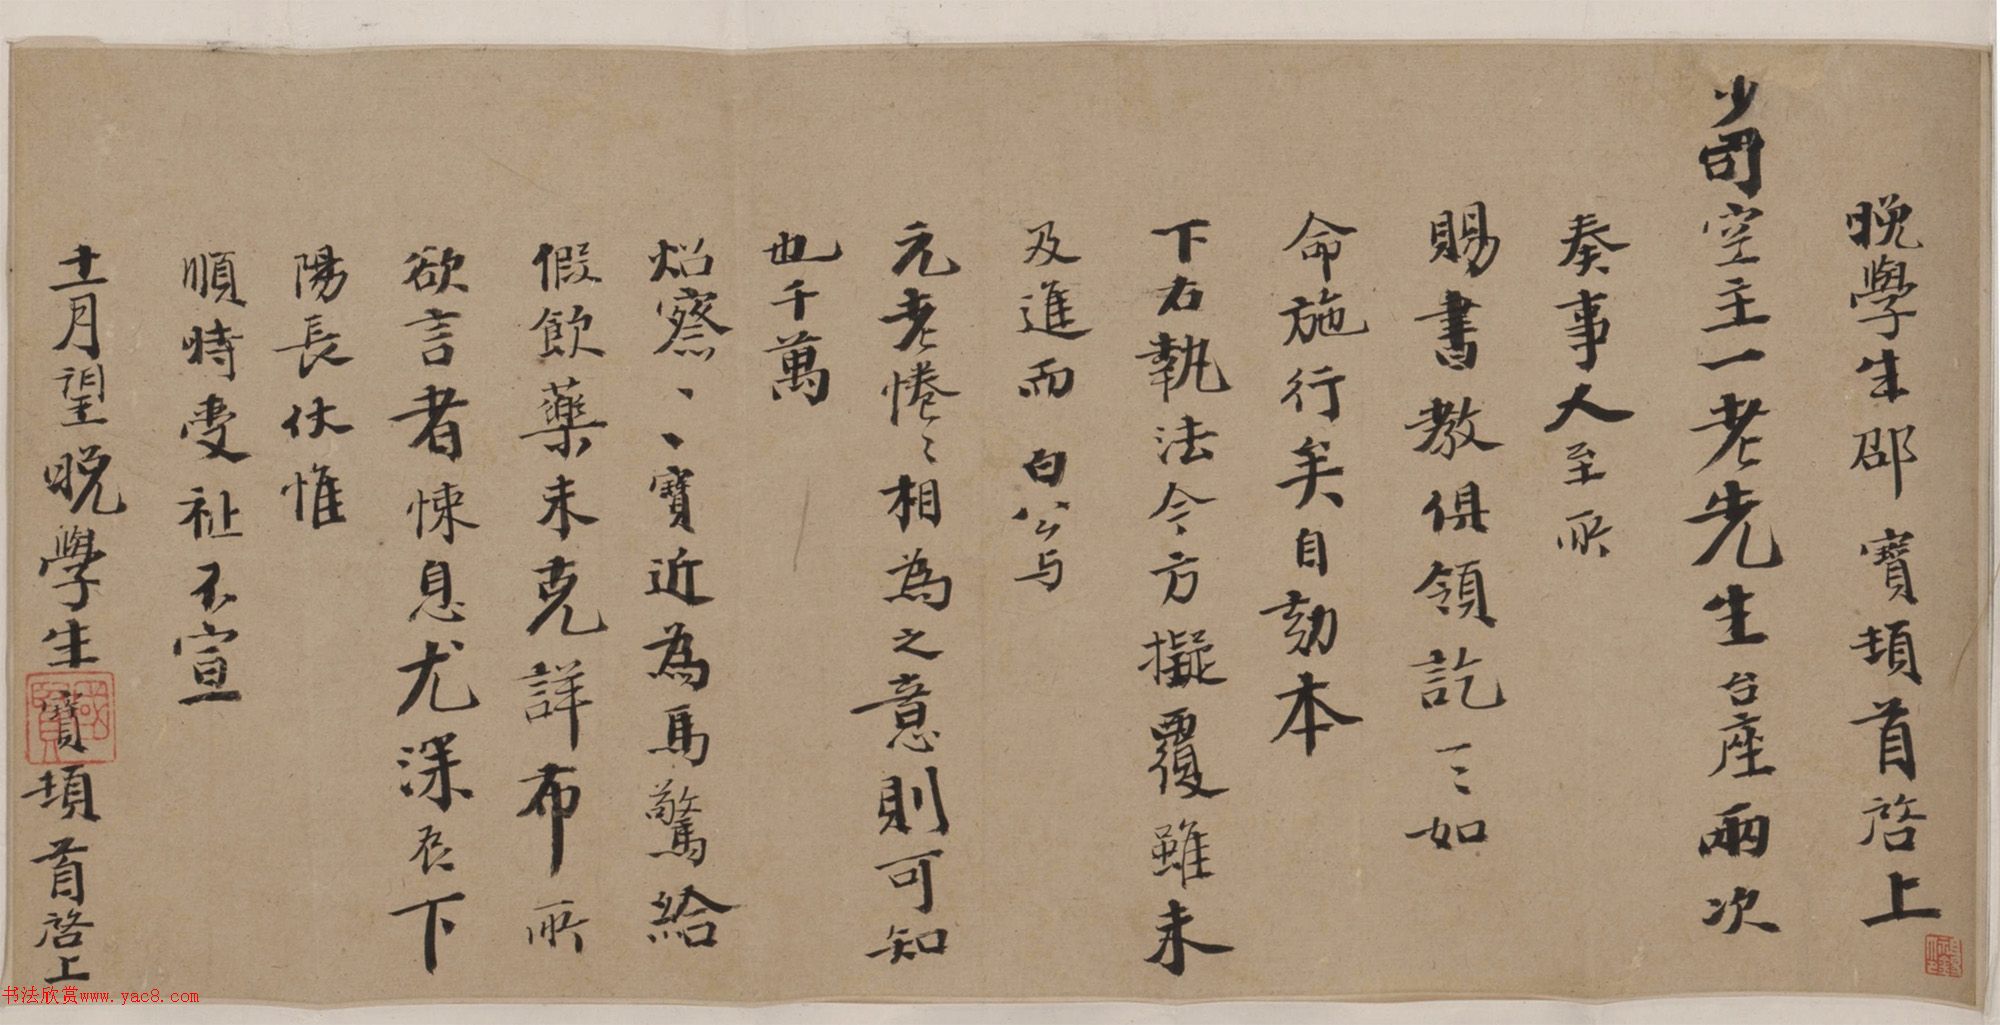 晚學生邵寶頓首啓上
少司空主一老先生台座兩次
奏事人至所
賜書教俱領訖一〻如
命施行矣自劾本
下右執法令方擬覆雖未
及進而白公与
元老惓〻相為之意則可知
也千萬
炤察、、寶近為馬驚給
假飲藥未克詳布所
欲言者悚息尤深即下
陽長伏惟
順時受祉不宣
十一月望晚學生寶頓首啓上
國賢
书法欣赏www.yac8.com